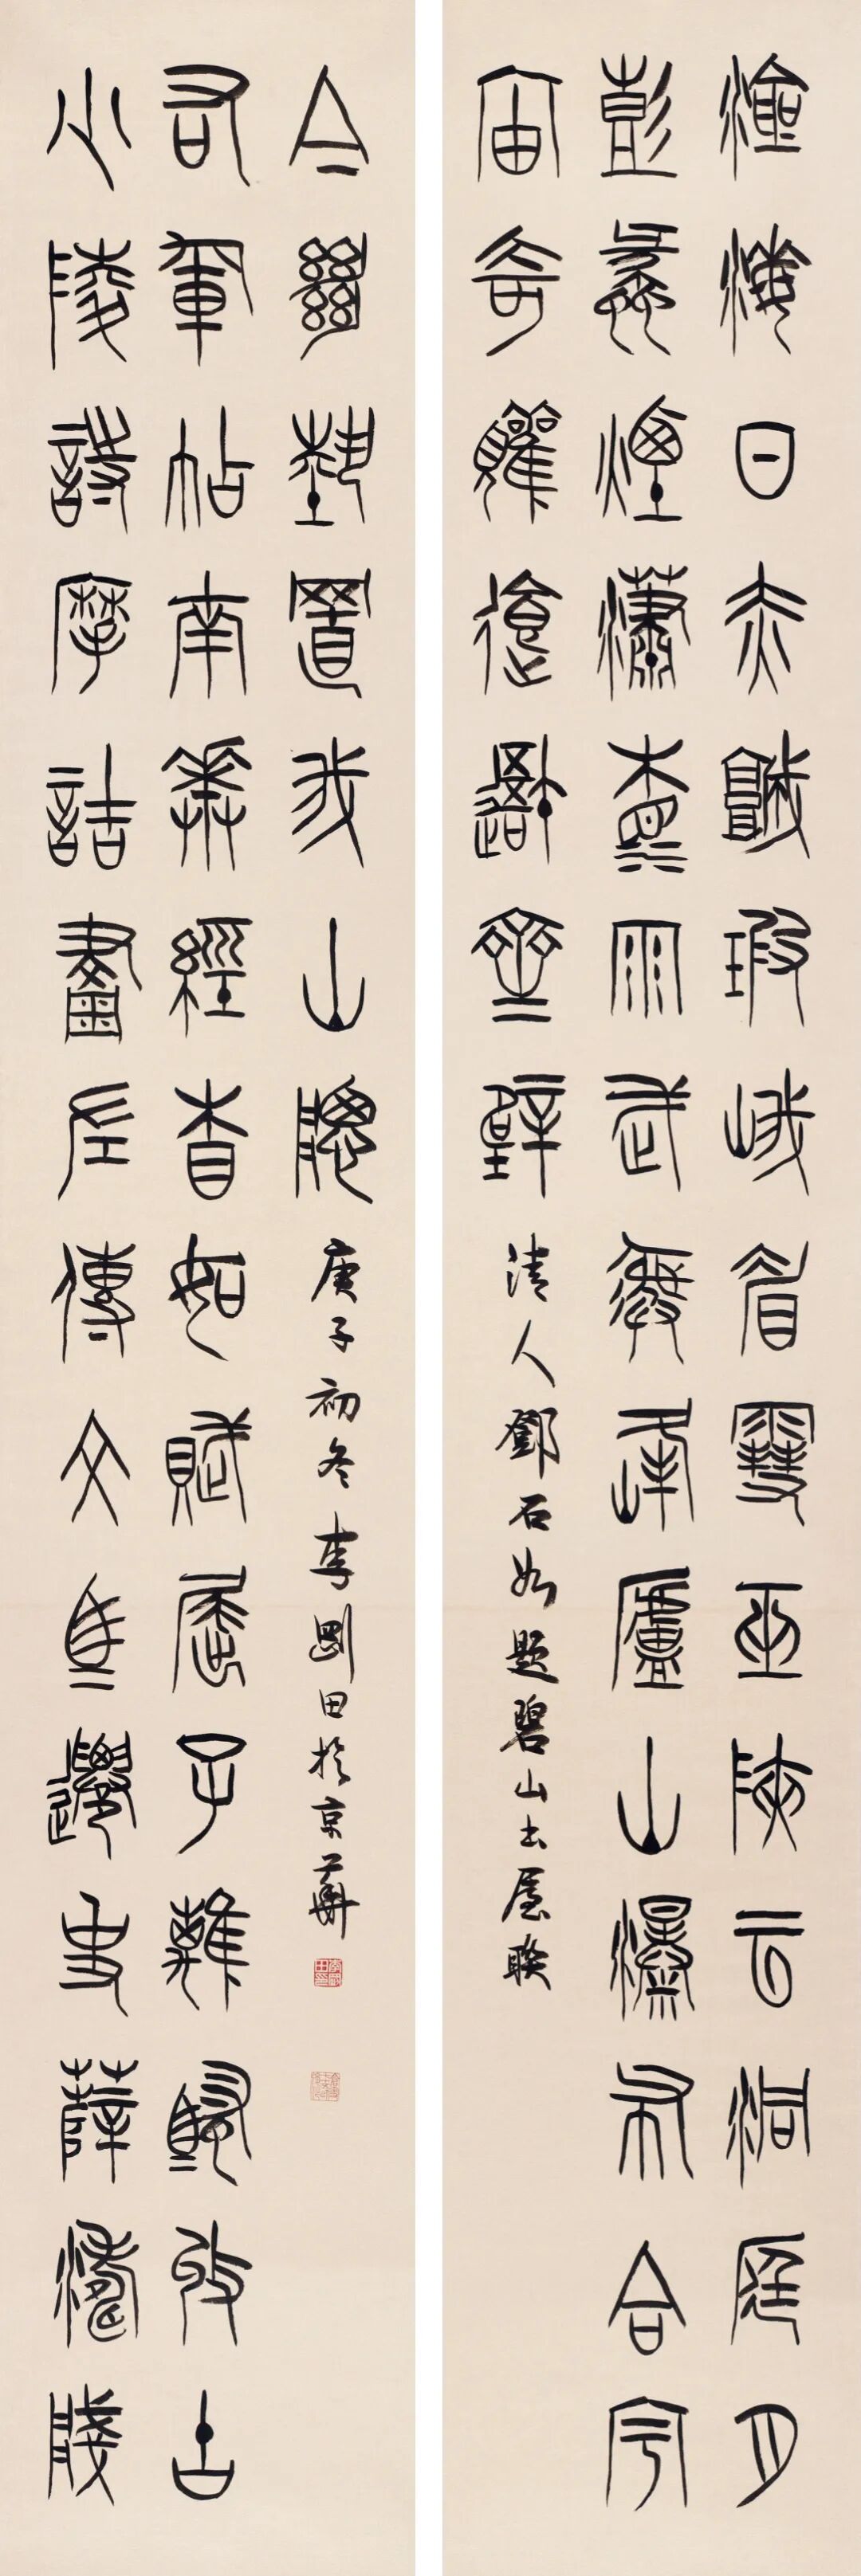 滄海日赤城霞峨眉雪巫峽云洞庭月
彭蠡煙瀟湘雨武夷峰廬山瀑布合宇
宙奇觀吾齋壁
清人鄧石如題碧山書屋聯
少陵詩摩詰畫左傳文馬遷史薛濤牋
右軍帖南華經相如賦屈子離騷收古
今絕藝置我山牕
庚子初冬李剛田於京華